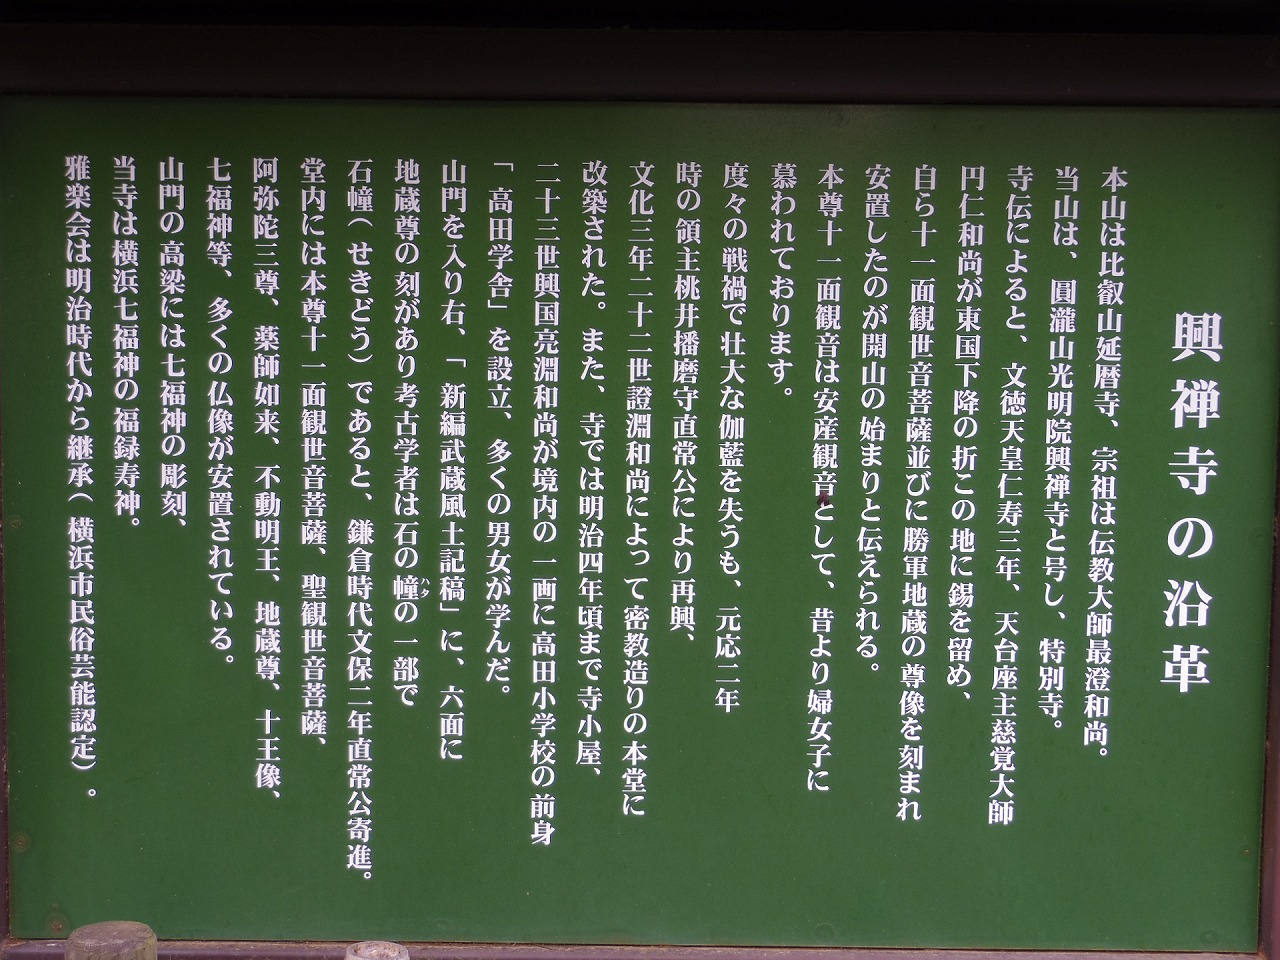 興禅寺の沿革
本山は比叡山延暦寺、宗祖は伝教大師最澄和尚。
当山は、圓瀧山光明院興禅寺と号し、特別寺。
寺伝によると、文徳天皇仁寿三年、天台座主慈覚大師
円仁和尚が東国下降の折この地に錫を留め、
自ら十一面観世音菩薩並びに勝軍地蔵の尊像を刻まれ
安置したのが開山の始まりと伝えられる。
本尊十一面観音は安産観音として、昔より婦女子に
慕われております。
度々の戦禍で壮大な伽藍を失うも、元応二年
時の領主桃井播磨守直常公により再興、
文化三年二十二世證淵和尚によって密教造りの本堂に
改築された。また、寺では明治四年頃まで寺小屋、
二十三世興国亮淵和尚が境内の一画に高田小学校の前身
「高田学舎」を設立、多くの男女が学んだ。
山門を入り右、「新編武蔵風土記稿」に、六面に
地蔵尊の刻があり考古学者は石の幢ハタの一部で
石幢(せきどう)であると、鎌倉時代文保二年直常公寄進。
堂内には本尊十一面観世音菩薩、聖観世音菩薩、
阿弥陀三尊、薬師如来、不動明王、地蔵尊、十王像、
七福神等、多くの仏像が安置されている。
山門の高梁には七福神の彫刻、
当寺は横浜七福神の福録寿神。
雅楽会は明治時代から継承(横浜市民俗芸能認定)。